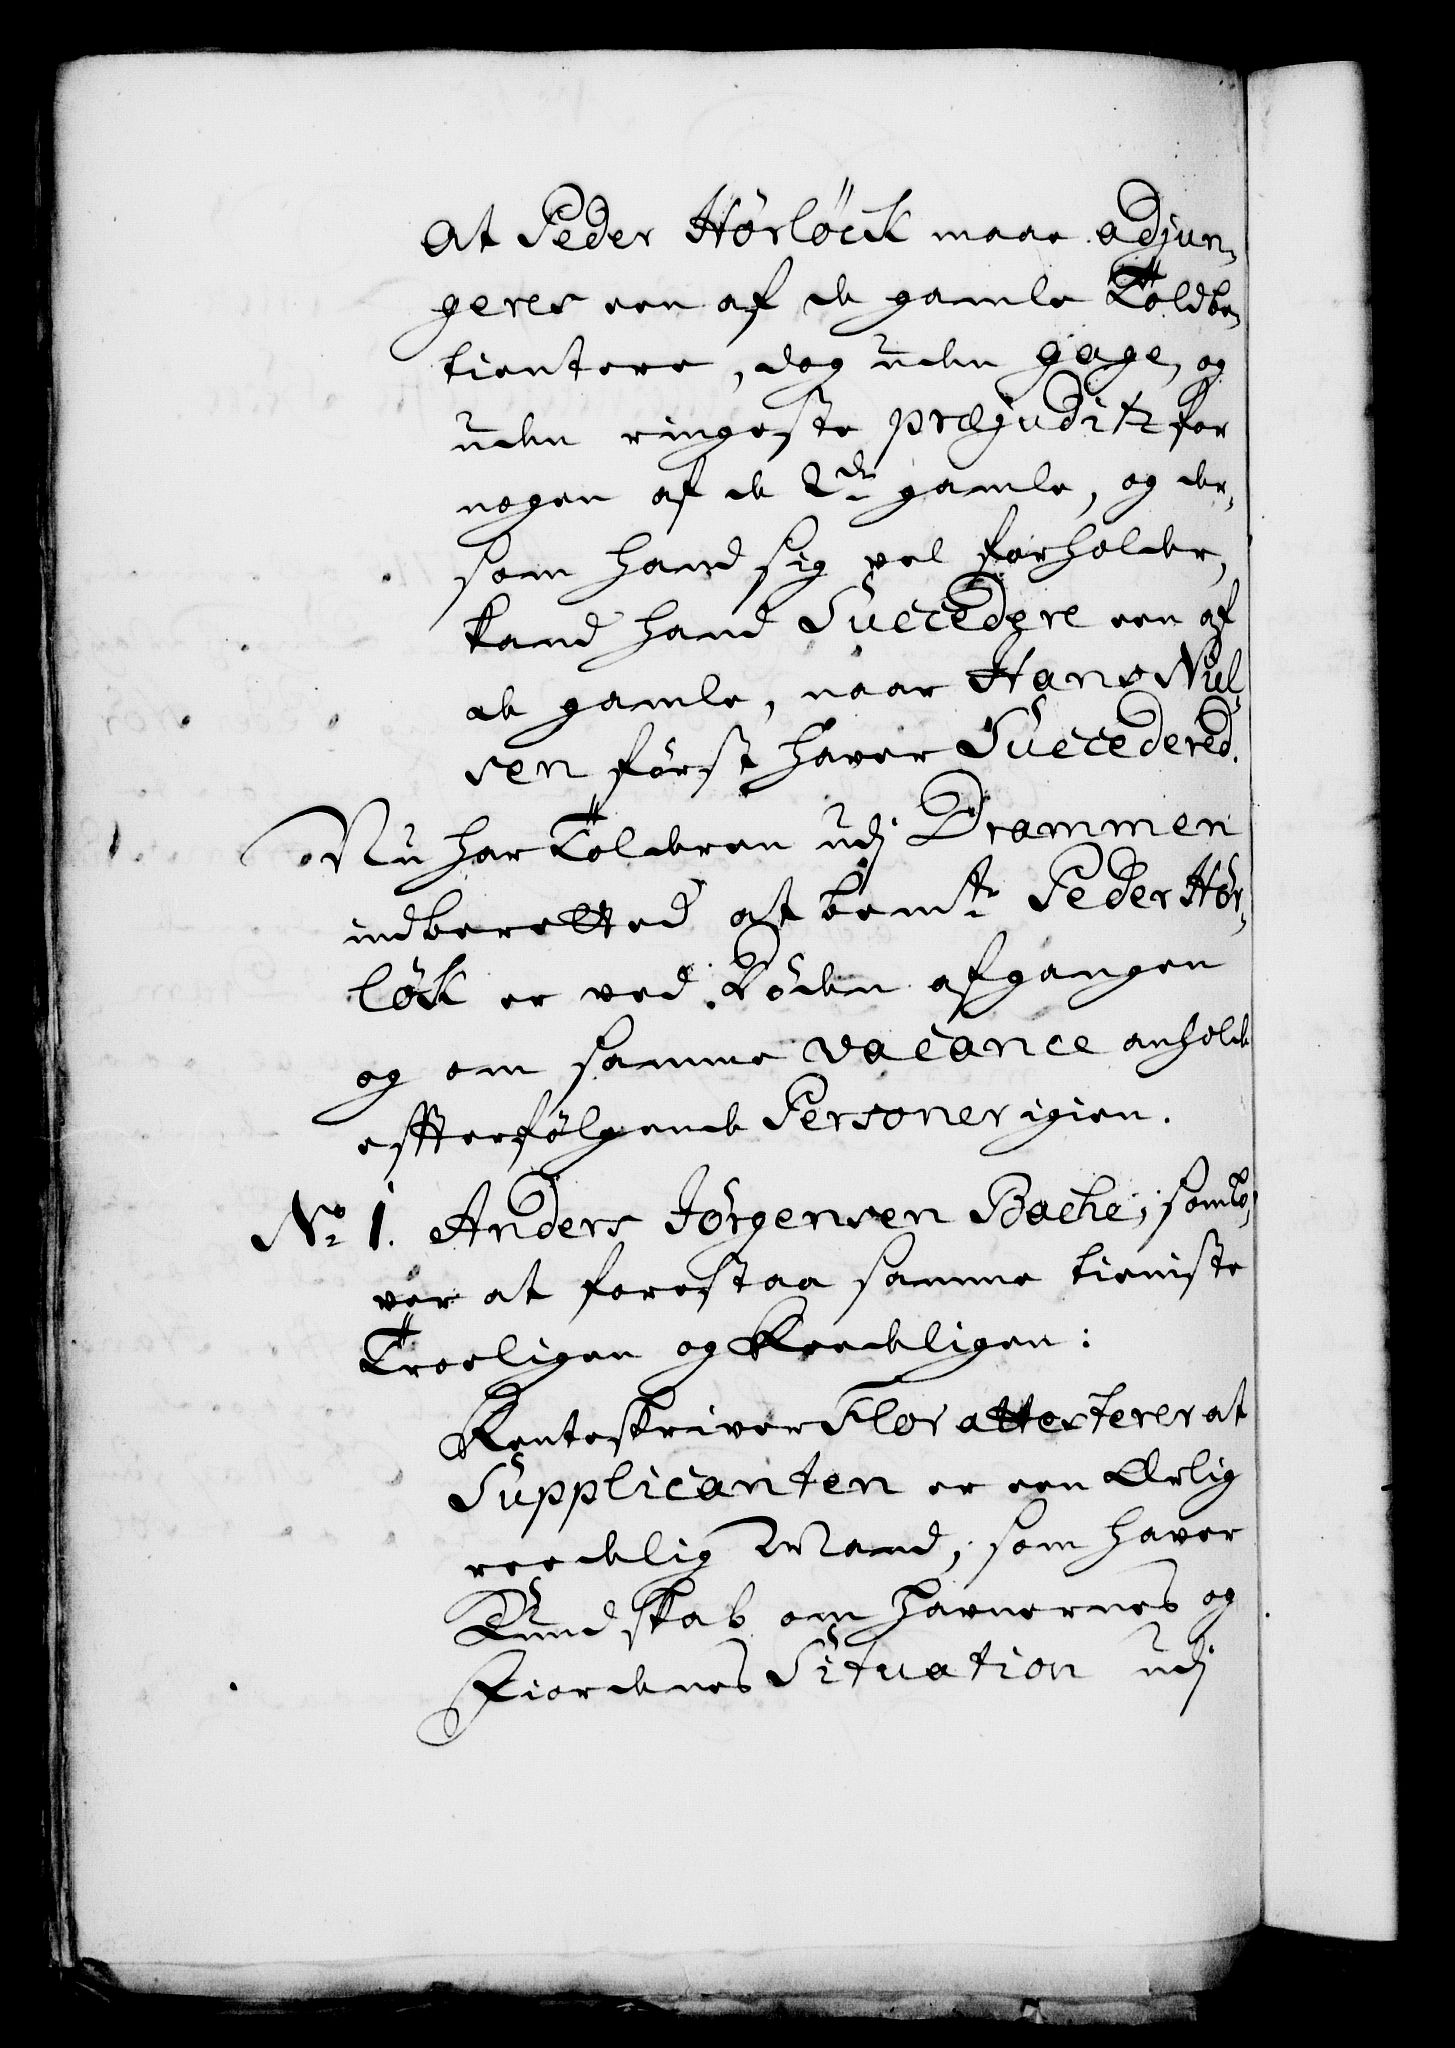 at Peder Hörlöck maae adjun-
geres een af de gamle Toldbe-
tientere, dog uden gage, og
uden ringeste præjuditz for
nogen af de 2de gamle, og der-
som hand sig vel forholder,
kand hand Succedere een af
de gamle, naar Hans Niel-
sen först haver Succedered.
Nu har Tolderen udj Drammen
indberetted at bemte Peder Hör-
lök er ved Döden afgangen
og om samme vacance anholde
effterfölgende Personer igien.
No 1. Anders Jörgensen Bache, som lo-
ver at forestaa samme tieniste
Troeligen og Reedeligen:
Renteskriver Flor attesterer at
Supplicanten er een Ærlig
reedelig Mand, som haver
Kundskab om havnernes og
Fiordenes Situation udj